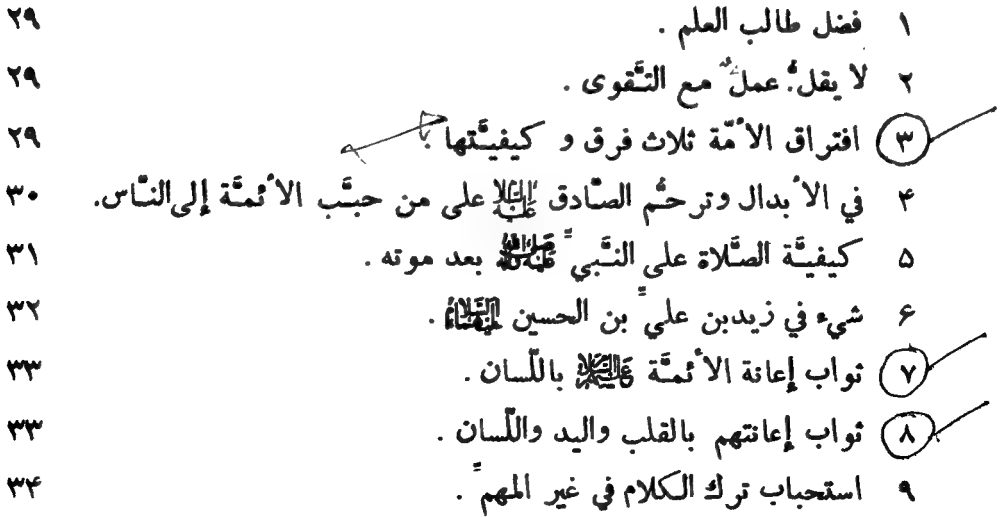 ١ فضل طالب العلم . ٢٩
٢ لا يقلُّ عملٌ مع التَّقوى . ٢٩
٣ افتراق الأمّة ثلاث فرق و كيفيَّتها . ٢٩
۴ في الأبدال وترحُّم الصّادق عليه السلام على من حبَّب الأئمَّة إلى النَّاس. ٣٠
۵ كيفيَّة الصَّلاة على النَّبيّ بعد موته . ٣١
۶ شيء في زيدبن عليّ بن الحسين عليهما السلام . ٣٢
٧ ثواب إعانة الأئمَّة عليهم السلام باللّسان . ٣٣
٨ ثواب إعانتهم بالقلب واليد واللّسان . ٣٣
٩ استحباب ترك الكلام في غير المهمّ . ٣۴